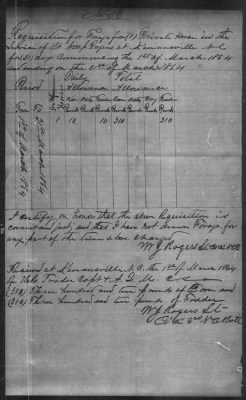 Requisition for Forage for (1) Private Horse in the
Service of Lt W J Rogers at Kenansville N C
for (31) days Commencing the 1st of March 1864
and ending on the 31st of March 1864
Daily Total
Period Allowance Allowance
corn oats Fodder Corn oats Hay Fodder
1st March 1864 to 31st March 1864
1 10 10 310 310
I certify, on honor that the above Requisition is
correct and just, and that I have not drawn Forage for
any part of the time above charged
W J Rogers Lt
Received at Kenansville N. C. the 1st of March 1864
of Trader Capt & A Q M
(310) Three hundred and ten pounds of Corn and
(310) Three hundred and ten pounds of Fodder
W J Rogers Lt